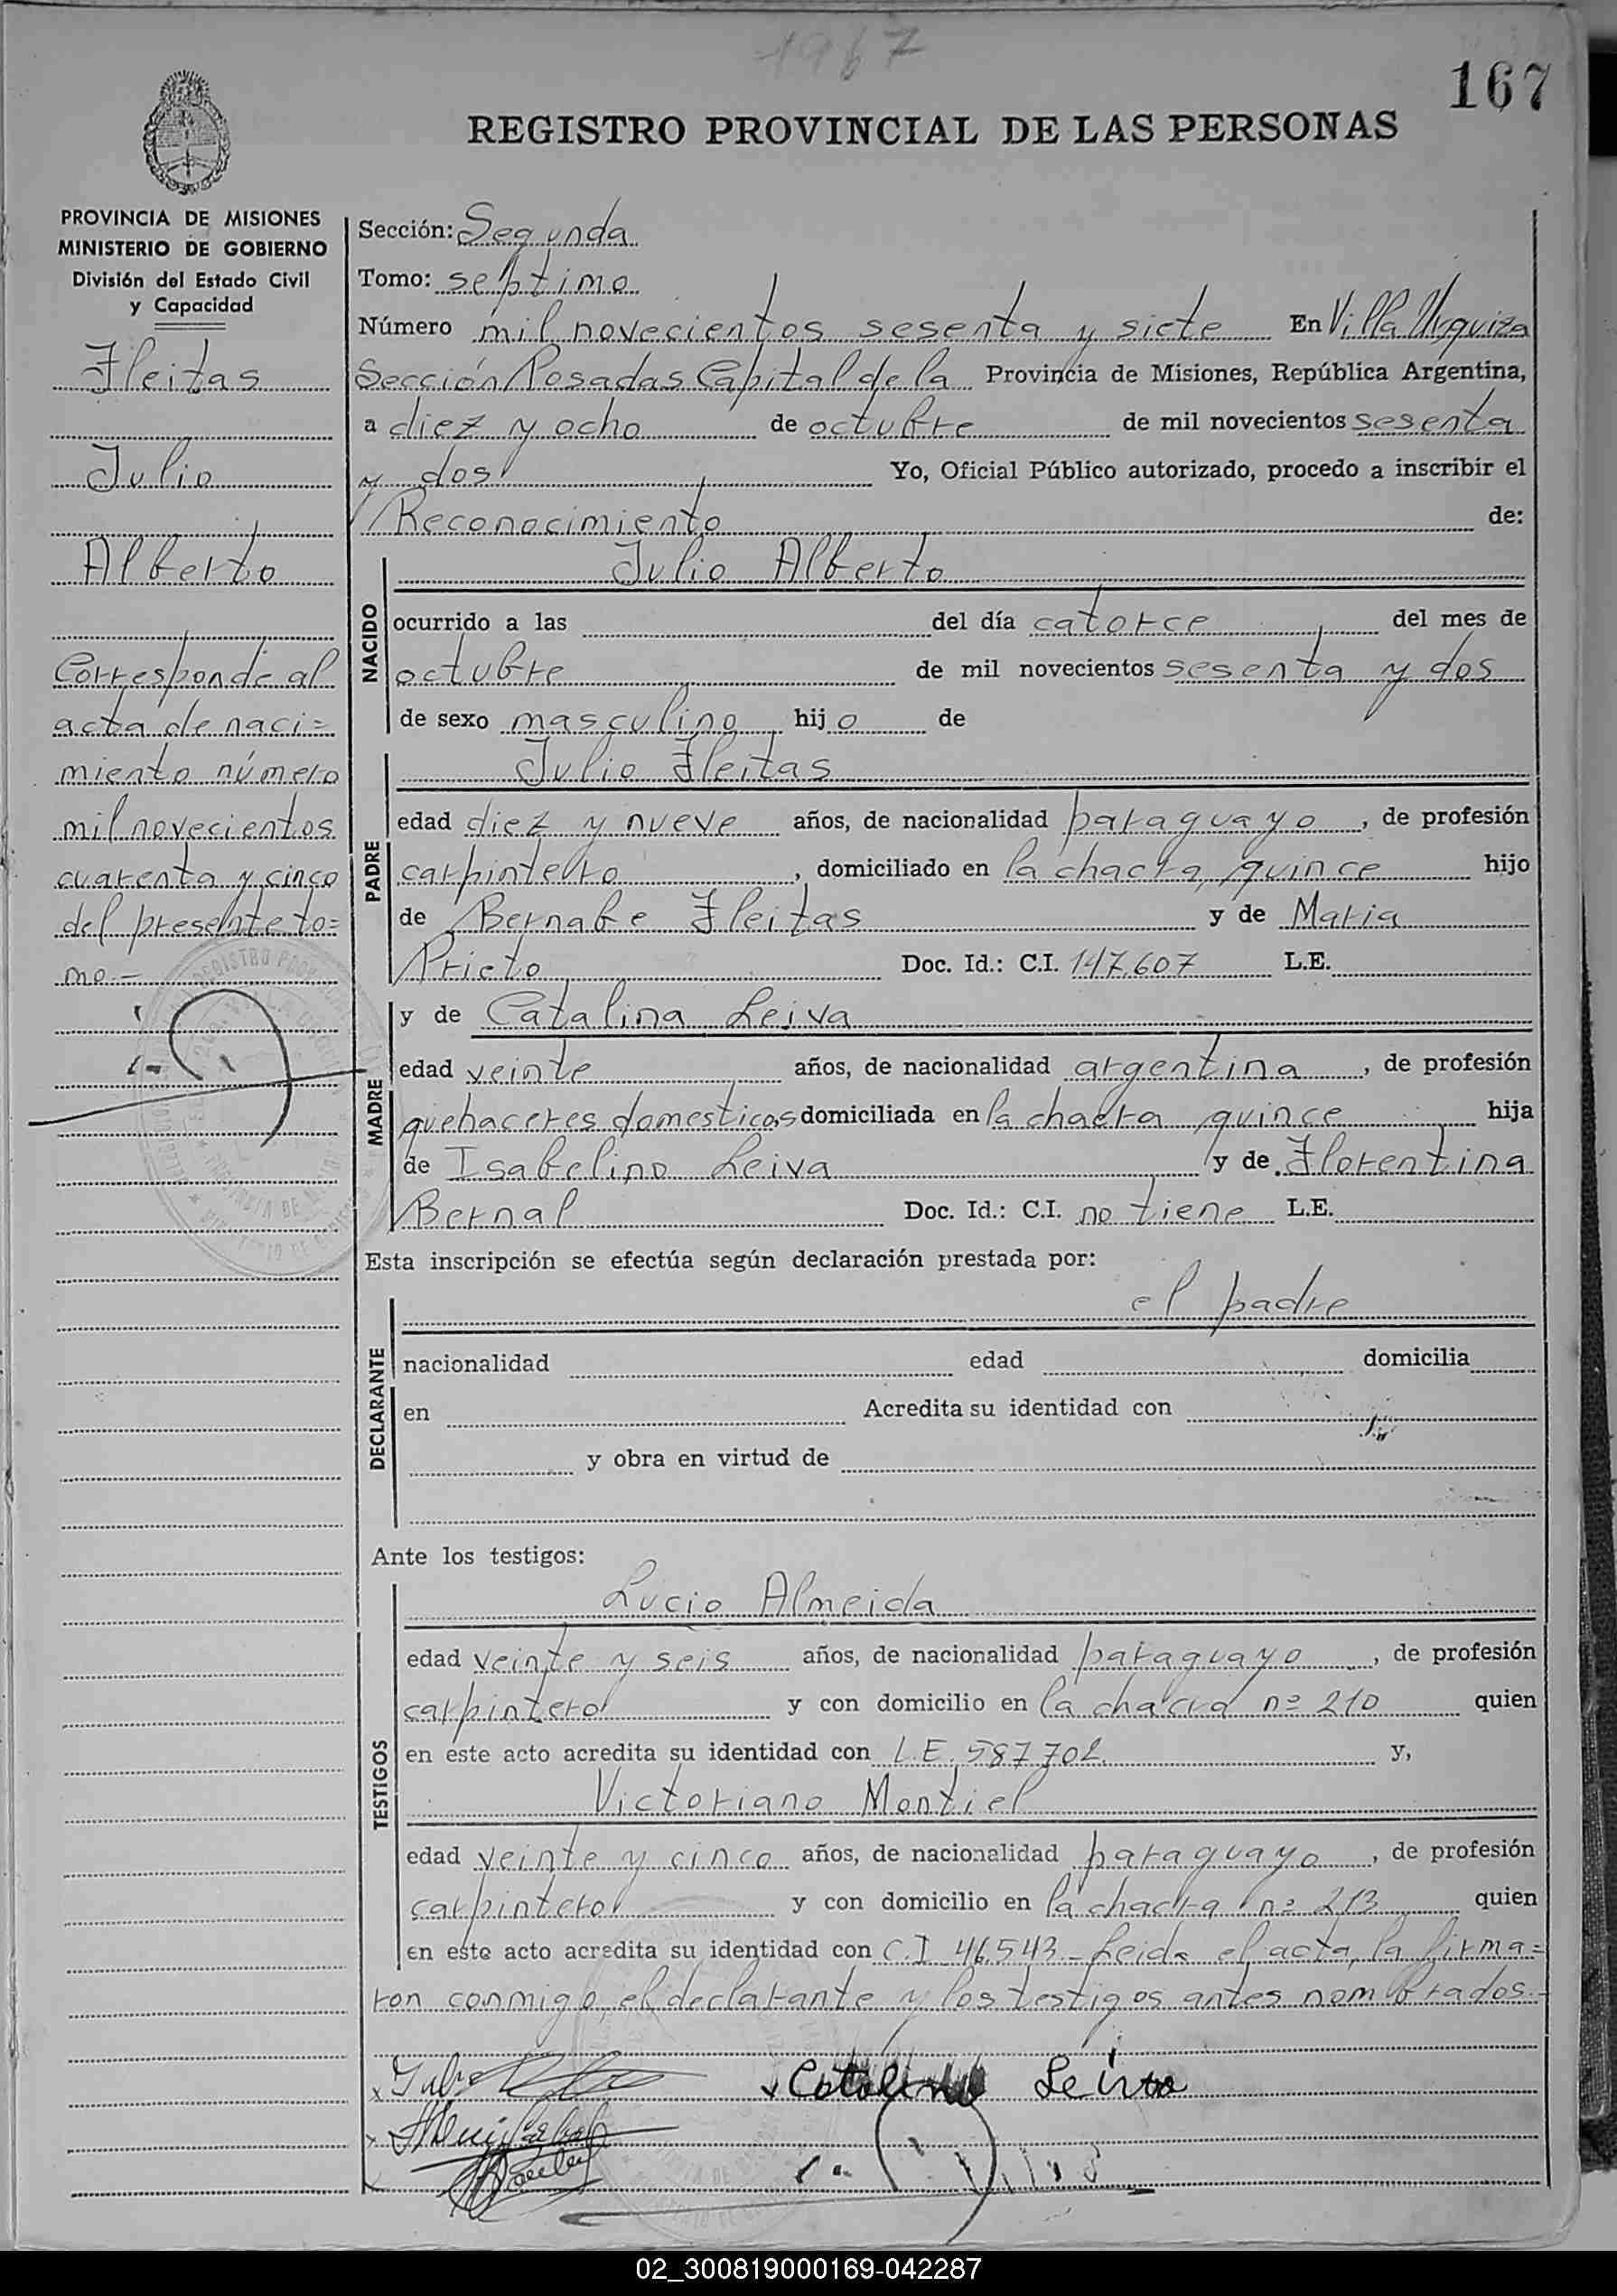 1967
167
REGISTRO PROVINCIAL DE LAS PERSONAS
PROVINCIA DE MISIONES
MINISTERIO DE GOBIERNO
División del Estado Civil
y Capacidad
Fleitas
Julio
Alberto
Corresponde al
acta de naci=
miento número
mil novecientos
cuarenta y cinco
del presente to=
mo.-
Sección: Segunda
Tomo: septimo
Número mil novecientos sesenta y siete En Villa Urquiza
Sección Posadas Capital de la Provincia de Misiones, República Argentina,
a diez y ocho de octubre de mil novecientos sesenta
y dos Yo, Oficial Público autorizado, procedo a inscribir el
Reconocimiento de:
NACIDO
Julio Alberto
ocurrido a las del día catorce del mes de
octubre de mil novecientos sesenta y dos
de sexo masculino hijo de
PADRE
Julio Fleitas
edad diez y nueve años, de nacionalidad paraguayo, de profesión
carpintero, domiciliado en la chacra quince hijo
de Bernabe Fleitas y de Maria
Prieto Doc. Id.: C.I. 147.607 L.E.
MADRE
y de Catalina Leiva
edad veinte años, de nacionalidad argentina, de profesión
quehaceres domesticos domiciliada en la chacra quince hija
de Isabelino Leiva y de Florentina
Bernal Doc. Id.: C.I. no tiene L.E.
Esta inscripción se efectúa según declaración prestada por:
DECLARANTE
el padre
nacionalidad edad domicilia
en Acredita su identidad con
y obra en virtud de
Ante los testigos:
TESTIGOS
Lucio Almeida
edad veinte y seis años, de nacionalidad paraguayo, de profesión
carpintero y con domicilio en la chacra nº 210 quien
en este acto acredita su identidad con L.E. 587702. y,
Victoriano Montiel
edad veinte y cinco años, de nacionalidad paraguayo, de profesión
carpintero y con domicilio en la chacra nº 213 quien
en este acto acredita su identidad con C.I 46.543.- Leida el acta, la firma=
ron conmigo, el declarante y los testigos antes nombrados.-
Catalina Leiva
02_300819000169-042287